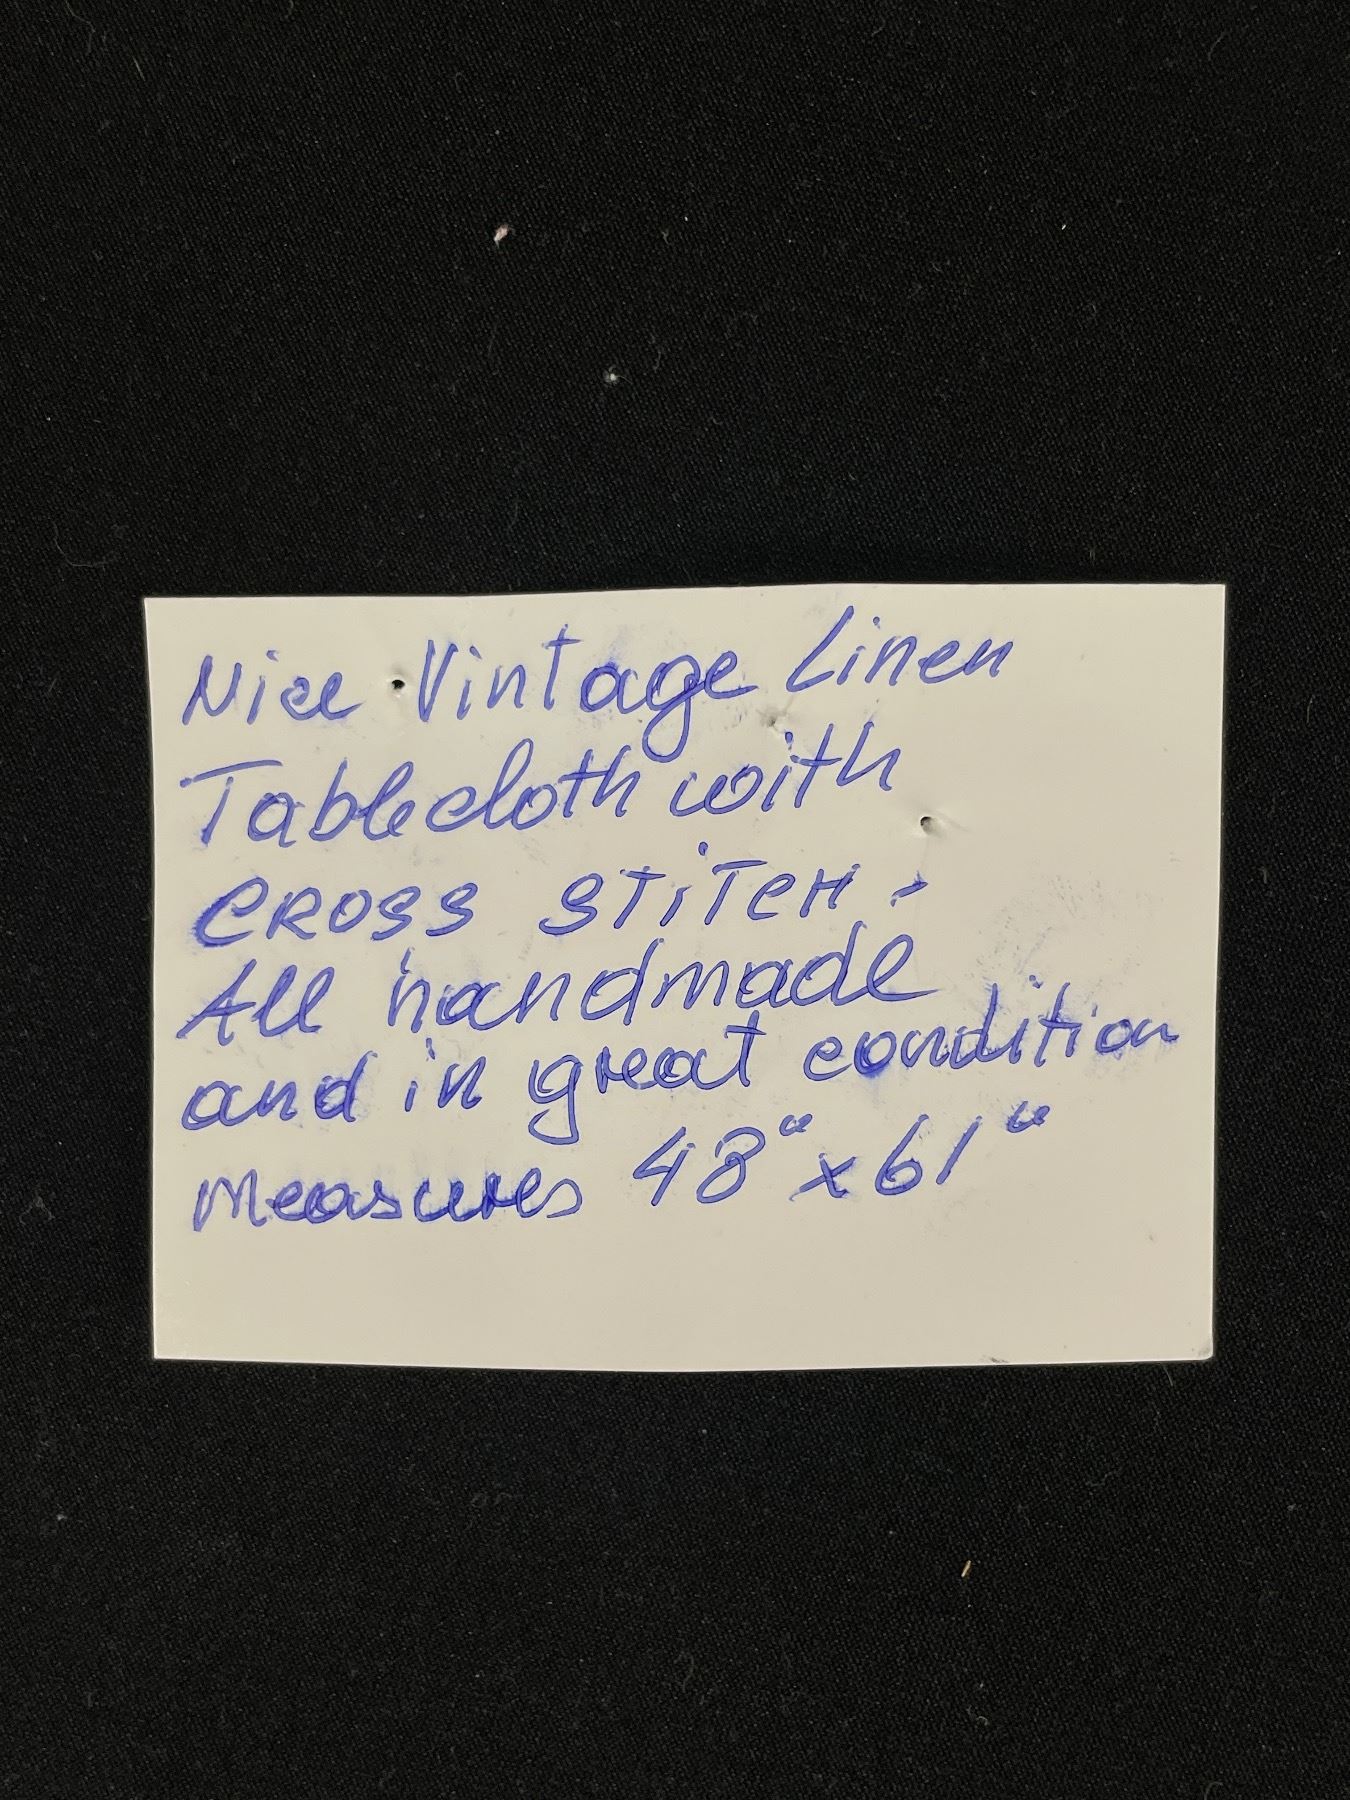 Nice Vintage Linen
Tablecloth with
CROSS STiTCH.
All handmade
and in great condition
Measures 48" x 61"